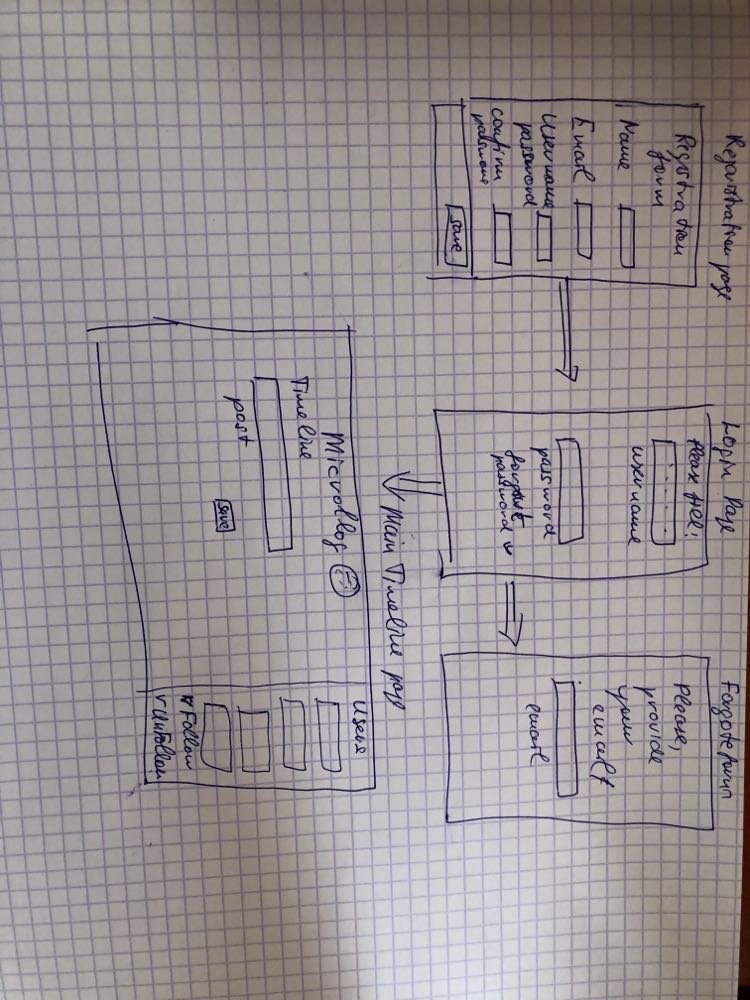 Registration page
Registration
form
Name
Email
Username
password
confirm
password
save
Login Page
Please fill:
username
password
forgot
password
Forgote form
Please,
provide
your
email
email
Main Timeline page
Microblog
Timeline
post
save
Users
Follow
Unfollow